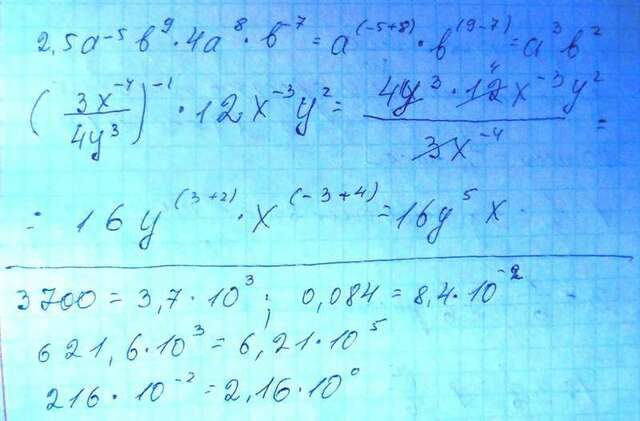 2,5a⁻⁵ b⁹ · 4a⁸ · b⁻⁷ = a⁽⁻⁵⁺⁸⁾ · b⁽⁹⁻⁷⁾ = a³ b²
(3x⁻⁴ / 4y³)⁻¹ · 12x⁻³y² = 4y³ · 12⁴ x⁻³y² / 3x⁻⁴ =
= 16y⁽³⁺²⁾ · x⁽⁻³⁺⁴⁾ = 16y⁵ x
3700 = 3,7 · 10³ ; 0,084 = 8,4 · 10⁻²
621,6 · 10³ = 6,21 · 10⁵
216 · 10⁻² = 2,16 · 10⁰